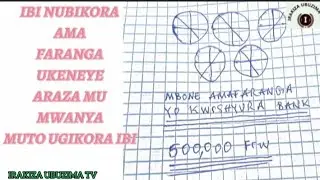 IBI NUBIKORA
AMA
FARANGA
UKENEYE
ARAZA MU
MWANYA
MUTO UGIKORA IBI
I
MBONE AMAFARANGA
YO KWISHYURA BANK
500,000 Frw
IRAKIZA UBUZIMA TV